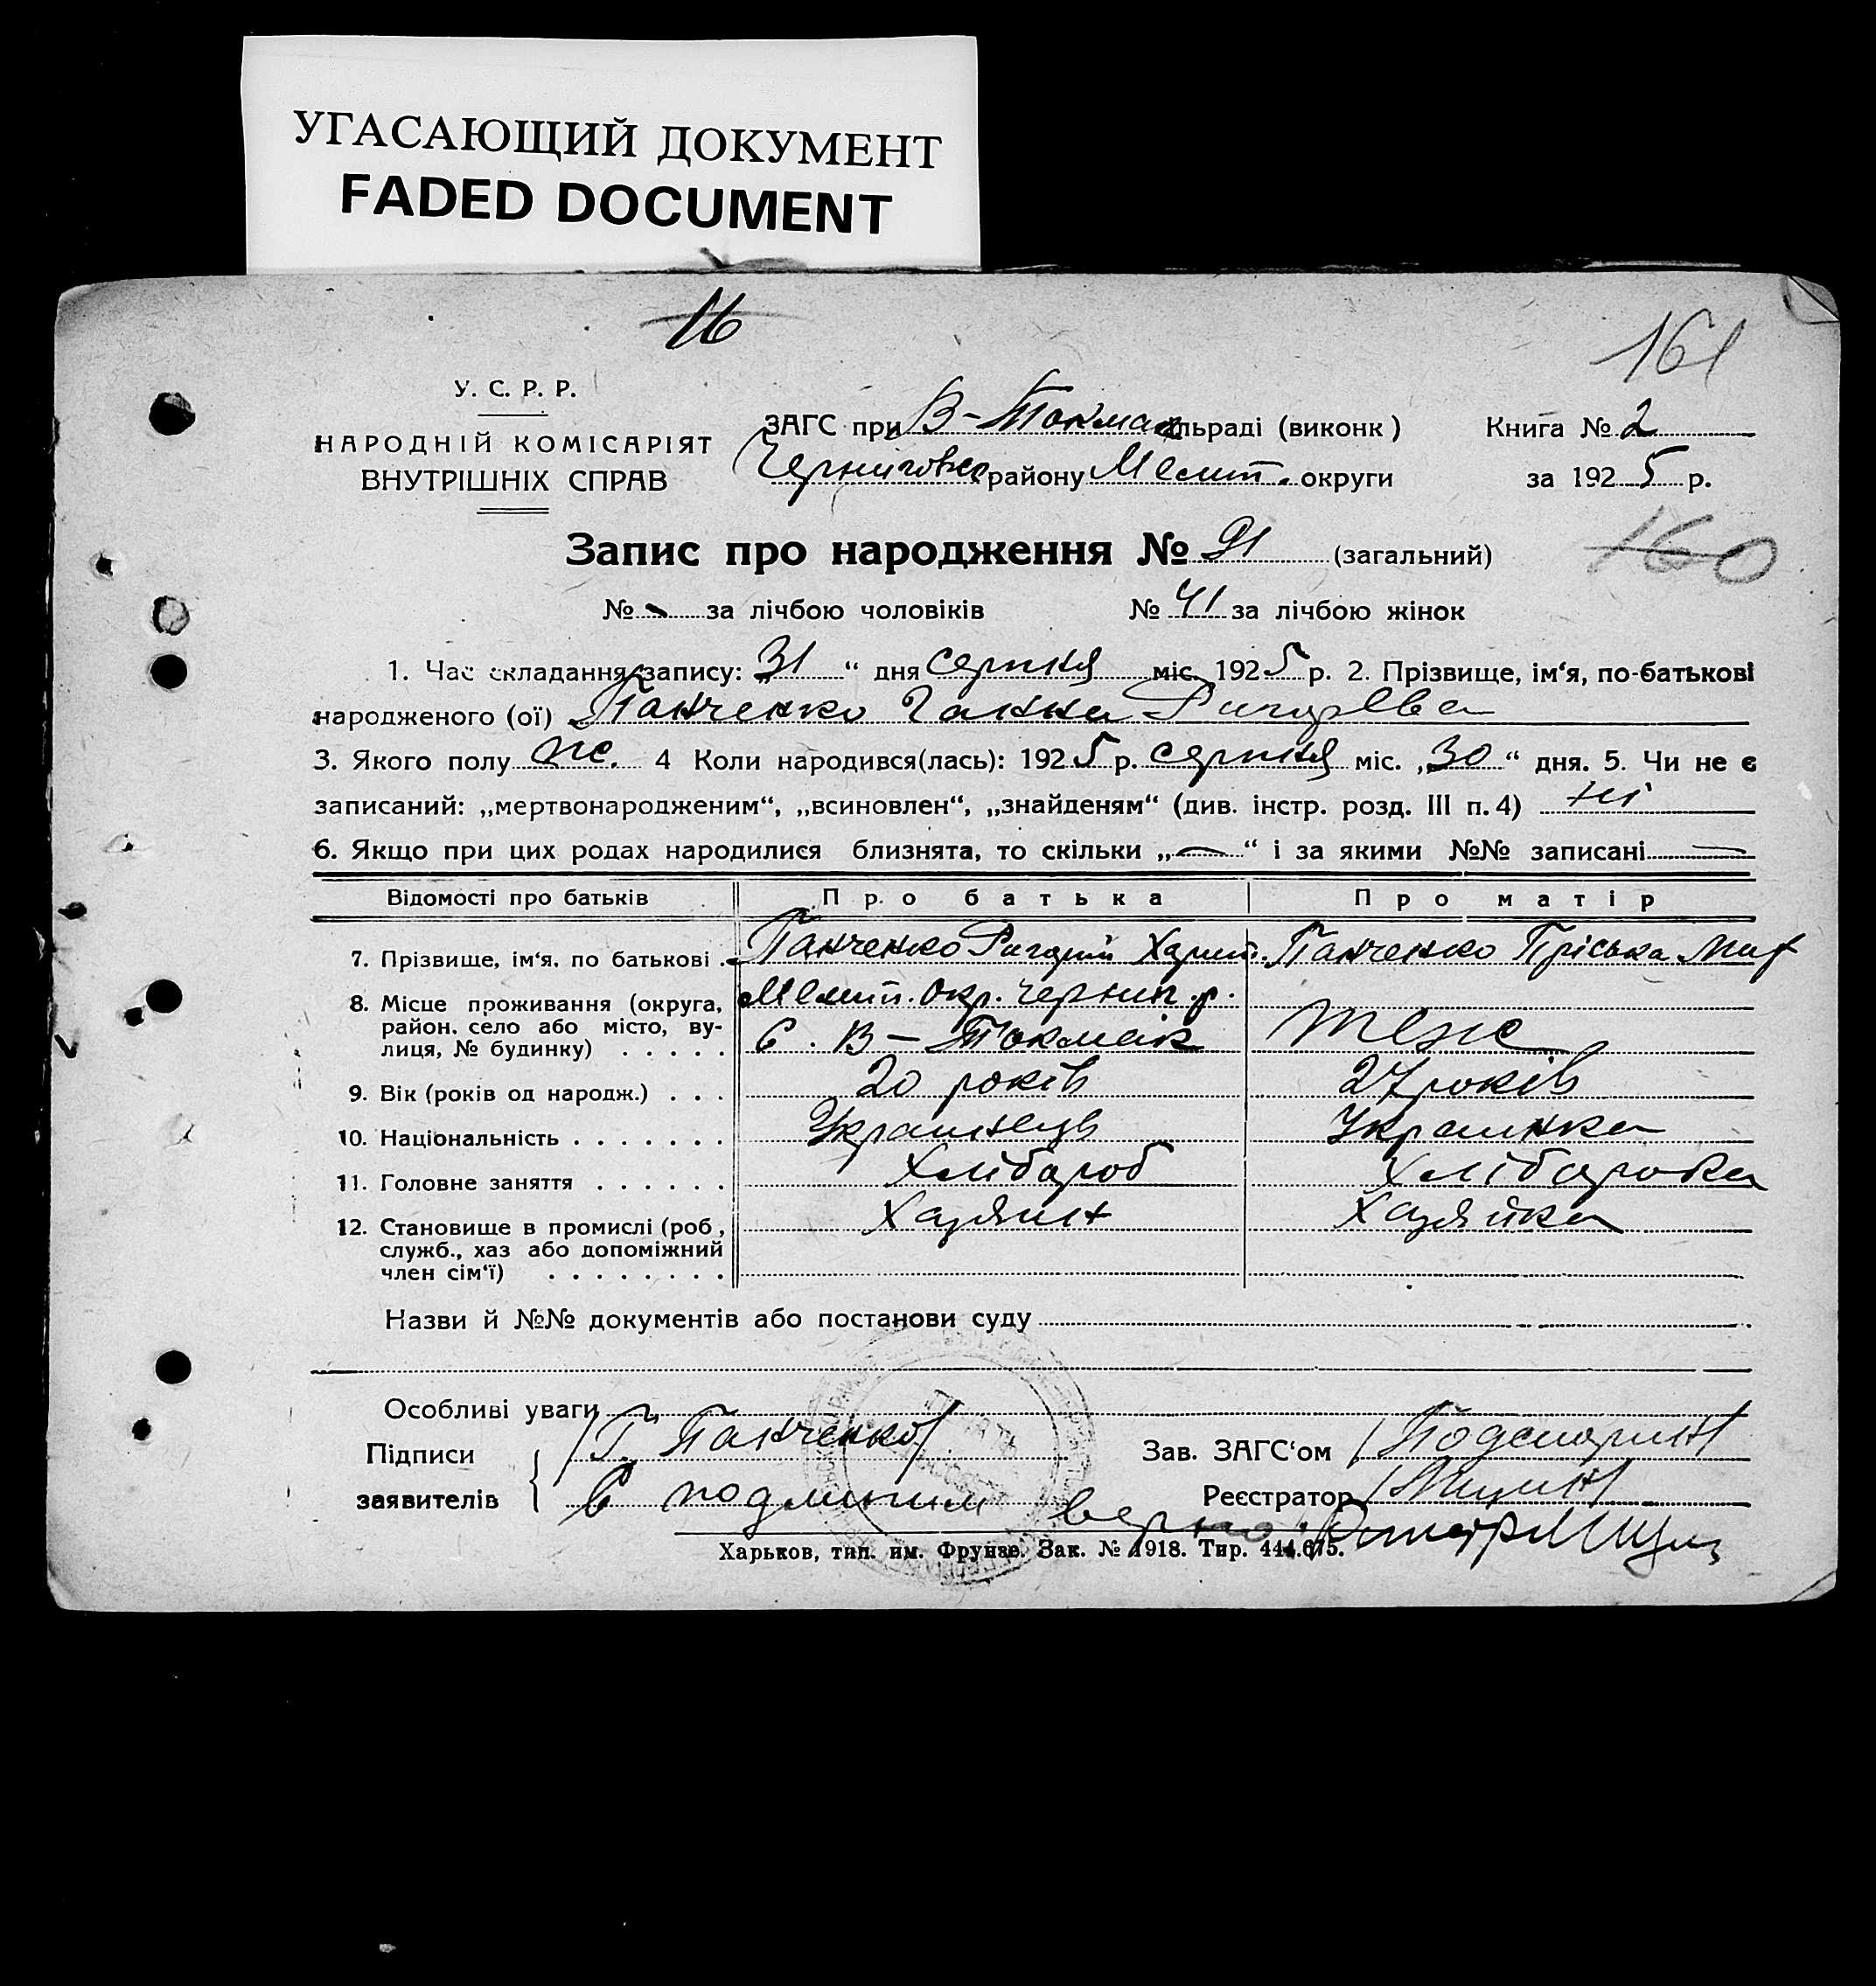 УГАСАЮЩИЙ ДОКУМЕНТ
FADED DOCUMENT
16
161
У. С. Р. Р.
НАРОДНІЙ КОМІСАРІЯТ
ВНУТРІШНІХ СПРАВ
ЗАГС при В-Токмак льраді (виконк)
Черніговко району Меліт. округи
Книга № 2
за 1925 р.
Запис про народження № 91 (загальний)
160
№ - за лічбою чоловіків № 41 за лічбою жінок
1. Час складання запису: „31“ дня серпня міс. 1925 р. 2. Прізвище, ім‘я, по-батькові
народженого (ої) Панченко Ганна Ригорєва
3. Якого полу ж. 4 Коли народився(лась): 1925 р. серпня міс. „30“ дня. 5. Чи не є
записаний: „мертвонародженим“, „всиновлен“, „знайденям“ (див. інстр. розд. III п. 4) ні
6. Якщо при цих родах народилися близнята, то скільки „—“ і за якими №№ записані —
Відомості про батьків Про батька Про матір
7. Прізвище, ім‘я, по батькові . Панченко Ригорій Харит. Панченко Пріська Миф
8. Місце проживання (округа, район, село або місто, ву-лиця, № будинку) . . . . .
Меліт. Окр. Черниг. р.
С. В-Токмак Теж
9. Вік (років од народж.) . . . 20 років 27 років
10. Національність . . . . . . . Українець Українка
11. Головне заняття . . . . . . Хлібороб Хліборобка
12. Становище в промислі (роб, служб., хаз або допоміжний член сім‘ї) . . . . . . . . Хазяїн Хазяйка
Назви й №№ документів або постанови суду
Особливі уваги
Підписи заявителів
/Г. Панченко/
Зав. ЗАГС‘ом
Реєстратор
С подлиним верно:
Харьков, тип. им. Фрунзе. Зак. № 1918. Тир. 444.675.